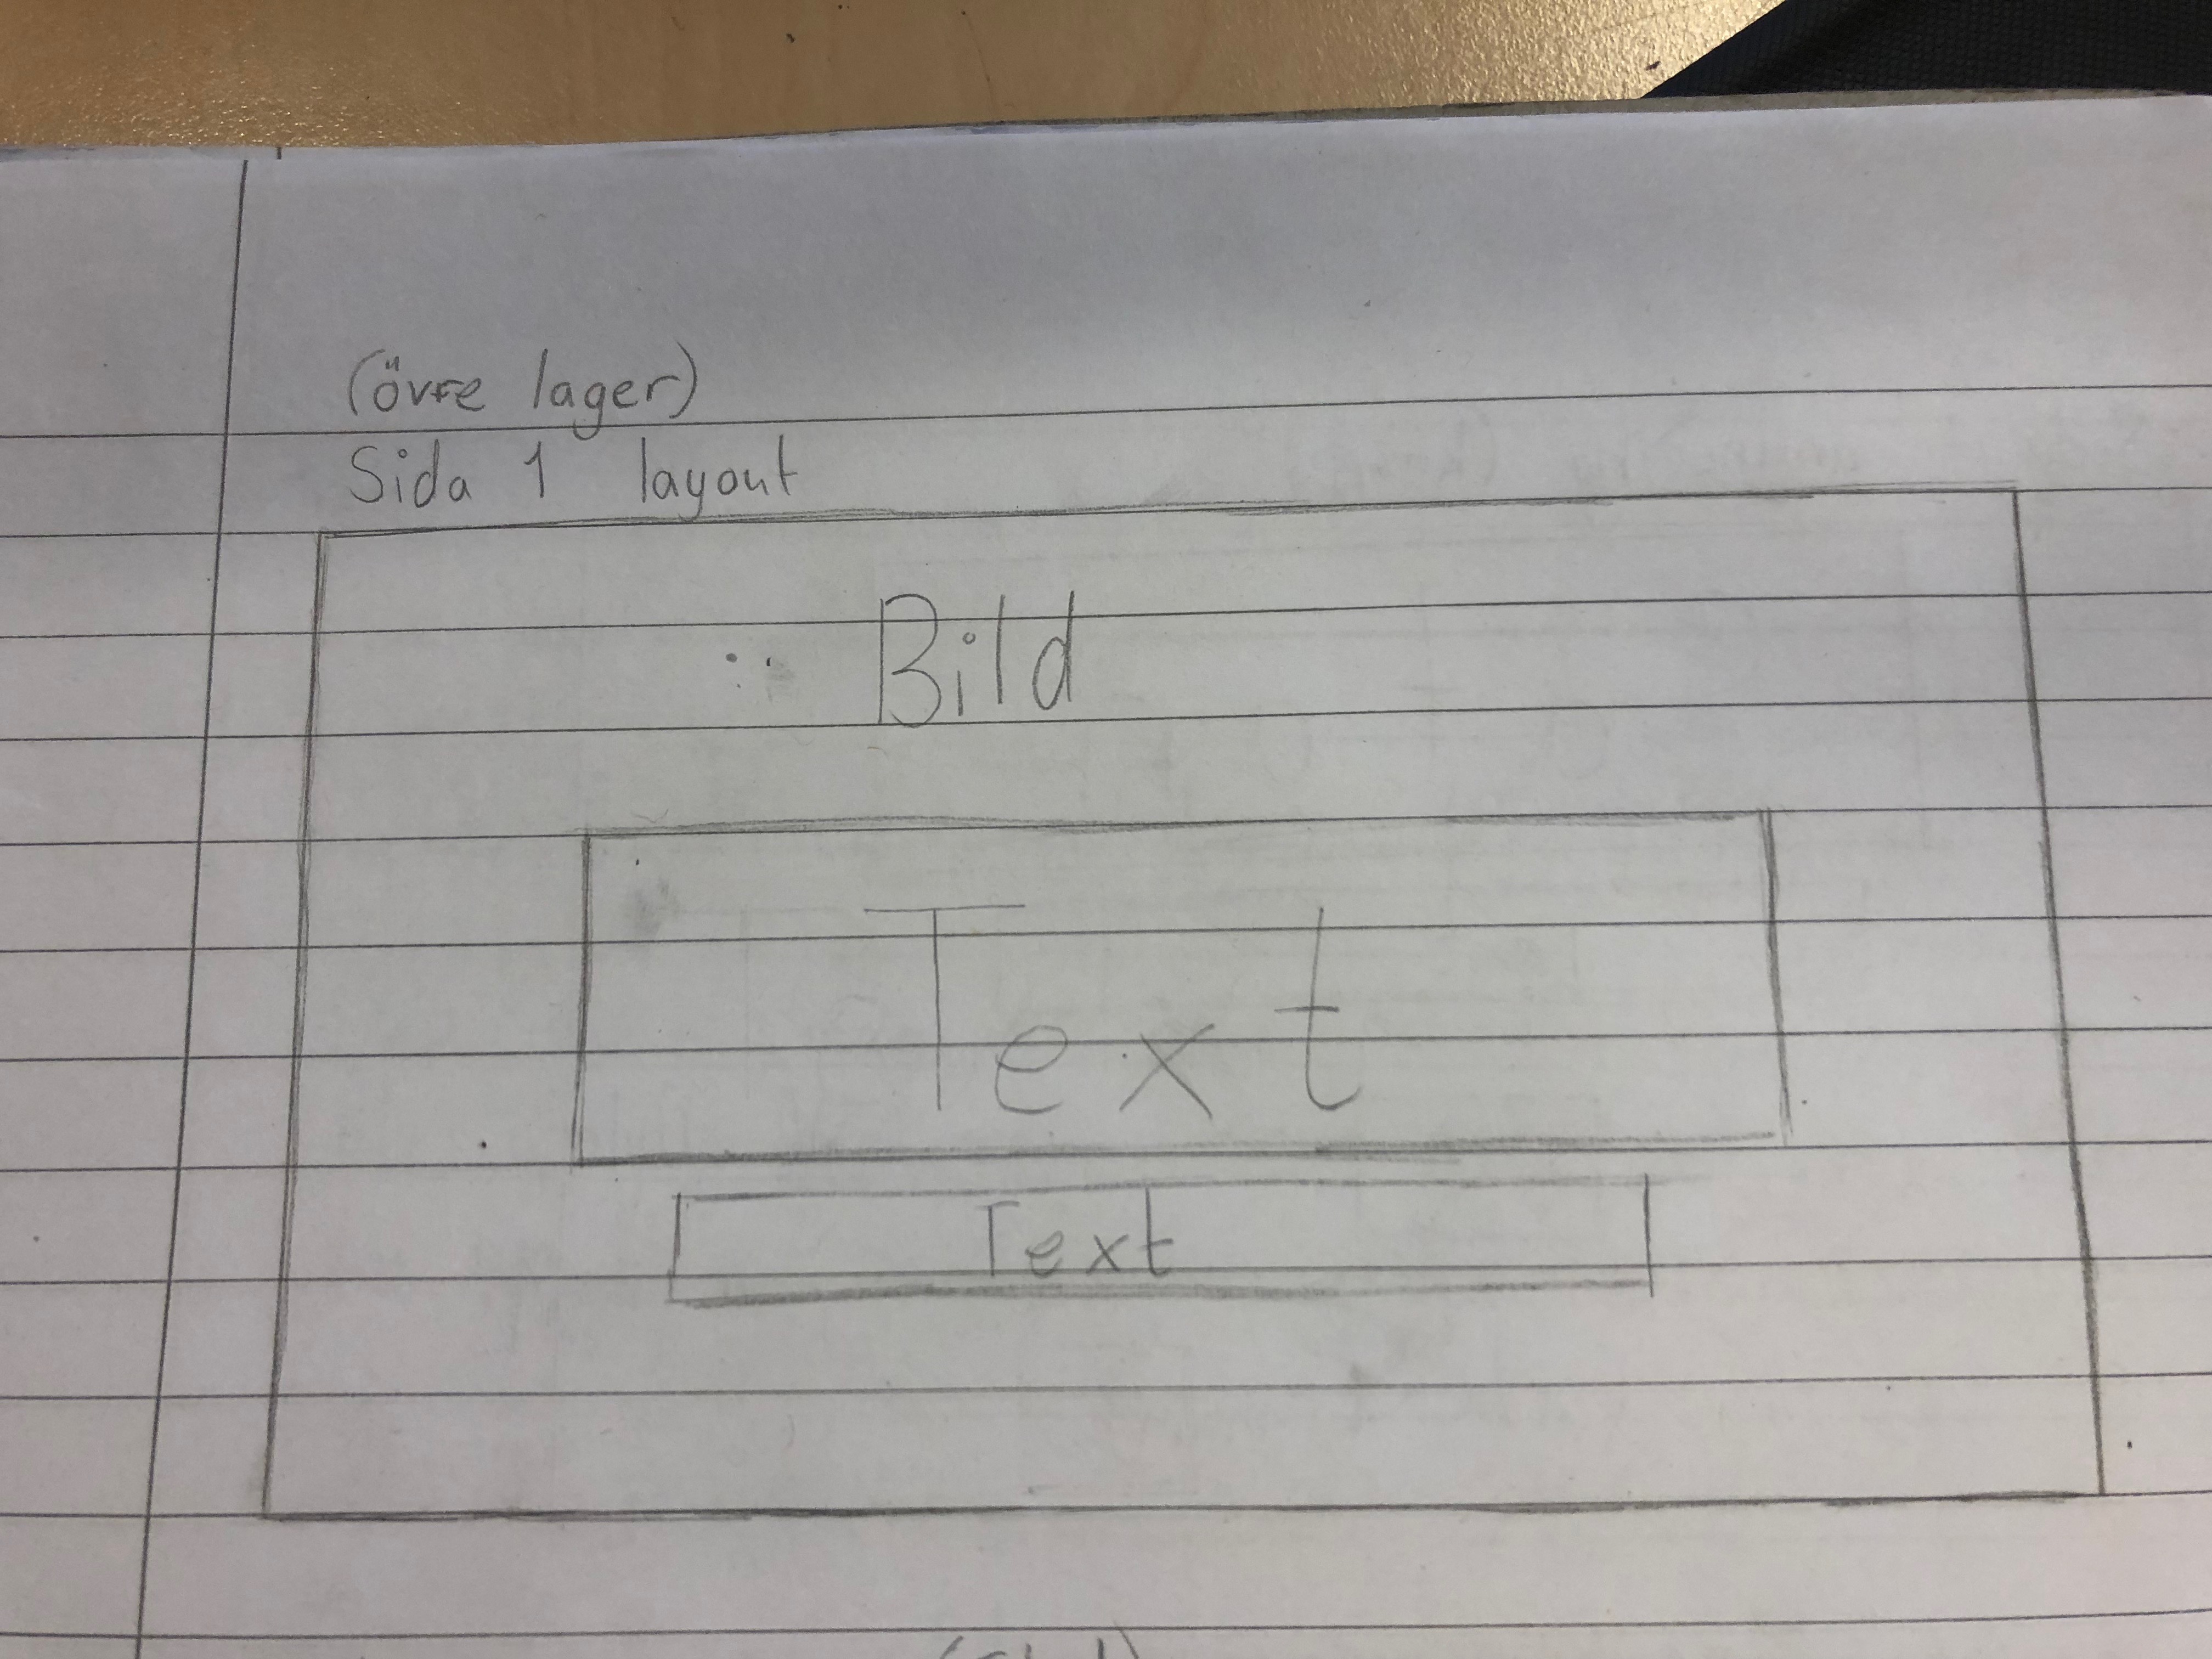 (övre lager)
Sida 1 layout
Bild
Text
Text